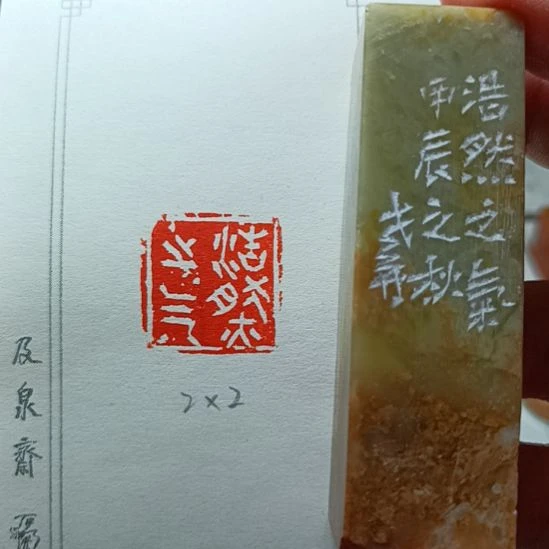 浩然之氣
甲辰之秋
浩然之氣
2×2
及泉齋